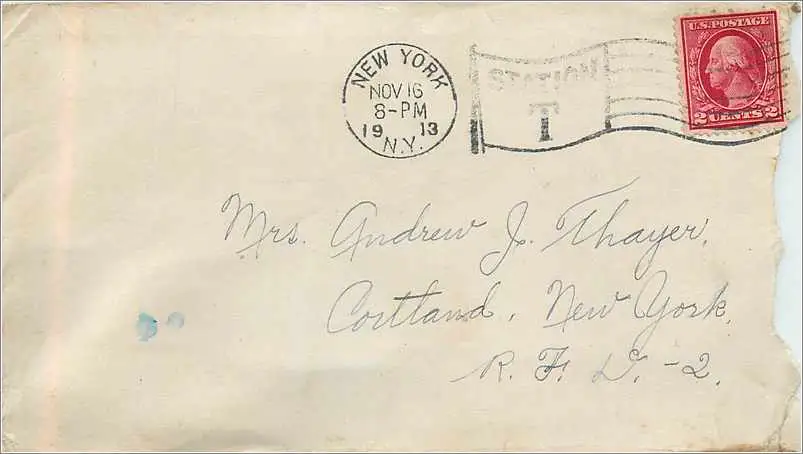 U.S. POSTAGE
2 CENTS 2
NEW YORK
NOV 16
8-PM
19 13
N.Y.
STATION
Mrs. Andrew J. Thayer,
Cortland, New York,
R. F. D. -2.